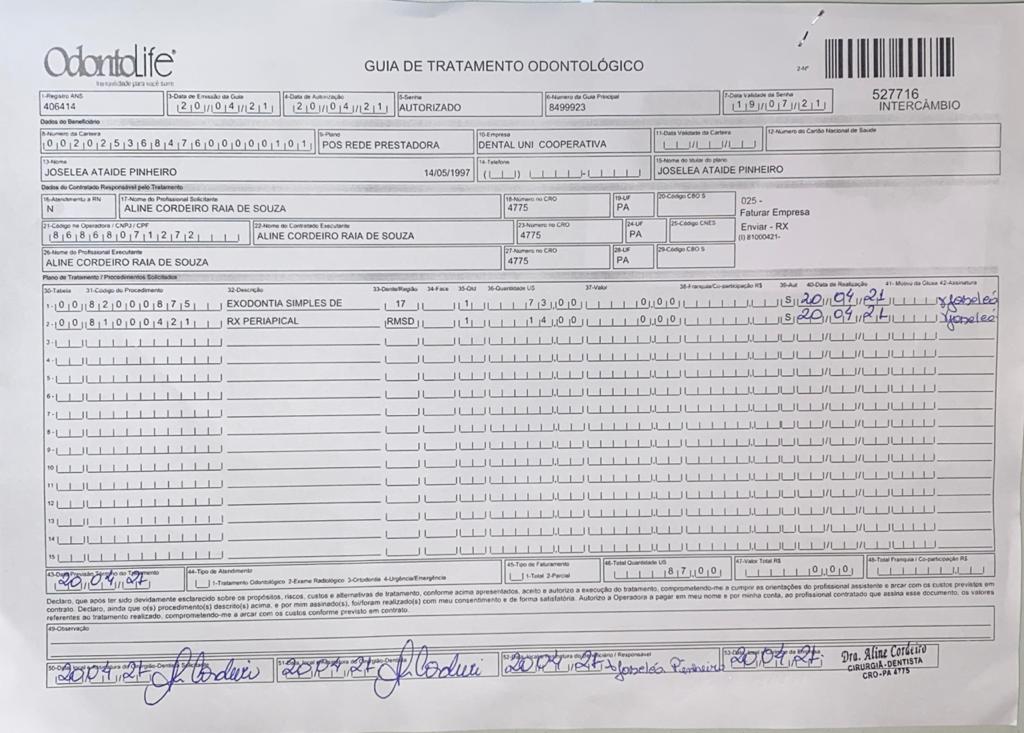 OdontoLife
GUIA DE TRATAMENTO ODONTOLÓGICO
2-Nº
527716
INTERCÂMBIO
1-Registro ANS
406414
3-Data de Emissão da Guia
20/04/21
4-Data de Autorização
20/04/21
5-Senha
AUTORIZADO
6-Número da Guia Principal
8499923
7-Data Validade da Senha
19/07/21
Dados do Beneficiário
8-Número da Carteira
00202536847600000101
9-Plano
POS REDE PRESTADORA
10-Empresa
DENTAL UNI COOPERATIVA
11-Data Validade da Carteira
12-Número do Cartão Nacional de Saúde
13-Nome
JOSELEA ATAIDE PINHEIRO 14/05/1997
14-Telefone
15-Nome do titular do plano
JOSELEA ATAIDE PINHEIRO
Dados do Contratado Responsável pelo Tratamento
16-Atendimento a RN
N
17-Nome do Profissional Solicitante
ALINE CORDEIRO RAIA DE SOUZA
18-Número no CRO
4775
19-UF
PA
20-Código CBO S
025 -
Faturar Empresa
Enviar - RX
(I) 81000421-
21-Código na Operadora / CNPJ / CPF
86868071272
22-Nome do Contratado Executante
ALINE CORDEIRO RAIA DE SOUZA
23-Número no CRO
4775
24-UF
PA
25-Código CNES
26-Nome do Profissional Executante
ALINE CORDEIRO RAIA DE SOUZA
27-Número no CRO
4775
28-UF
PA
29-Código CBO S
Plano de Tratamento / Procedimentos Solicitados
30-Tabela 31-Código do Procedimento 32-Descrição 33-Dente/Região 34-Face 35-Qtd 36-Quantidade US 37-Valor 38-Franquia/Co-participação R$ 39-Aut 40-Data de Realização 41- Motivo da Glosa 42-Assinatura
1- 00 82000875 EXODONTIA SIMPLES DE 17 1 73,00 0,00 S 20/04/21 Joseleá
2- 00 81000421 RX PERIAPICAL RMSD 1 14,00 0,00 S 20/04/21 Joseleá
3-
4-
5-
6-
7-
8-
9-
10
11
12
13
14
15
20/04/21
44-Tipo de Atendimento
1-Tratamento Odontológico 2-Exame Radiológico 3-Ortodontia 4-Urgência/Emergência
45-Tipo de Faturamento
1-Total 2-Parcial
46-Total Quantidade US
87,00
47-Valor Total R$
0,00
48-Total Franquia / Co-participação R$
Declaro, que após ter sido devidamente esclarecido sobre os propósitos, riscos, custos e alternativas de tratamento, conforme acima apresentados, aceito e autorizo a execução do tratamento, comprometendo-me a cumprir as orientações do profissional assistente e arcar com os custos previstos em
contrato. Declaro, ainda que o(s) procedimento(s) descrito(s) acima, e por mim assinado(s), foi/foram realizado(s) com meu consentimento e de forma satisfatória. Autorizo a Operadora a pagar em meu nome e por minha conta, ao profissional contratado que assina esse documento, os valores
referentes ao tratamento realizado, comprometendo-me a arcar com os custos conforme previsto em contrato.
49-Observação
20/04/21 20/04/21 20/04/21 Joseleá Pinheiro 20/04/21
Dra. Aline Cordeiro
CIRURGIÃ-DENTISTA
CRO-PA 4775